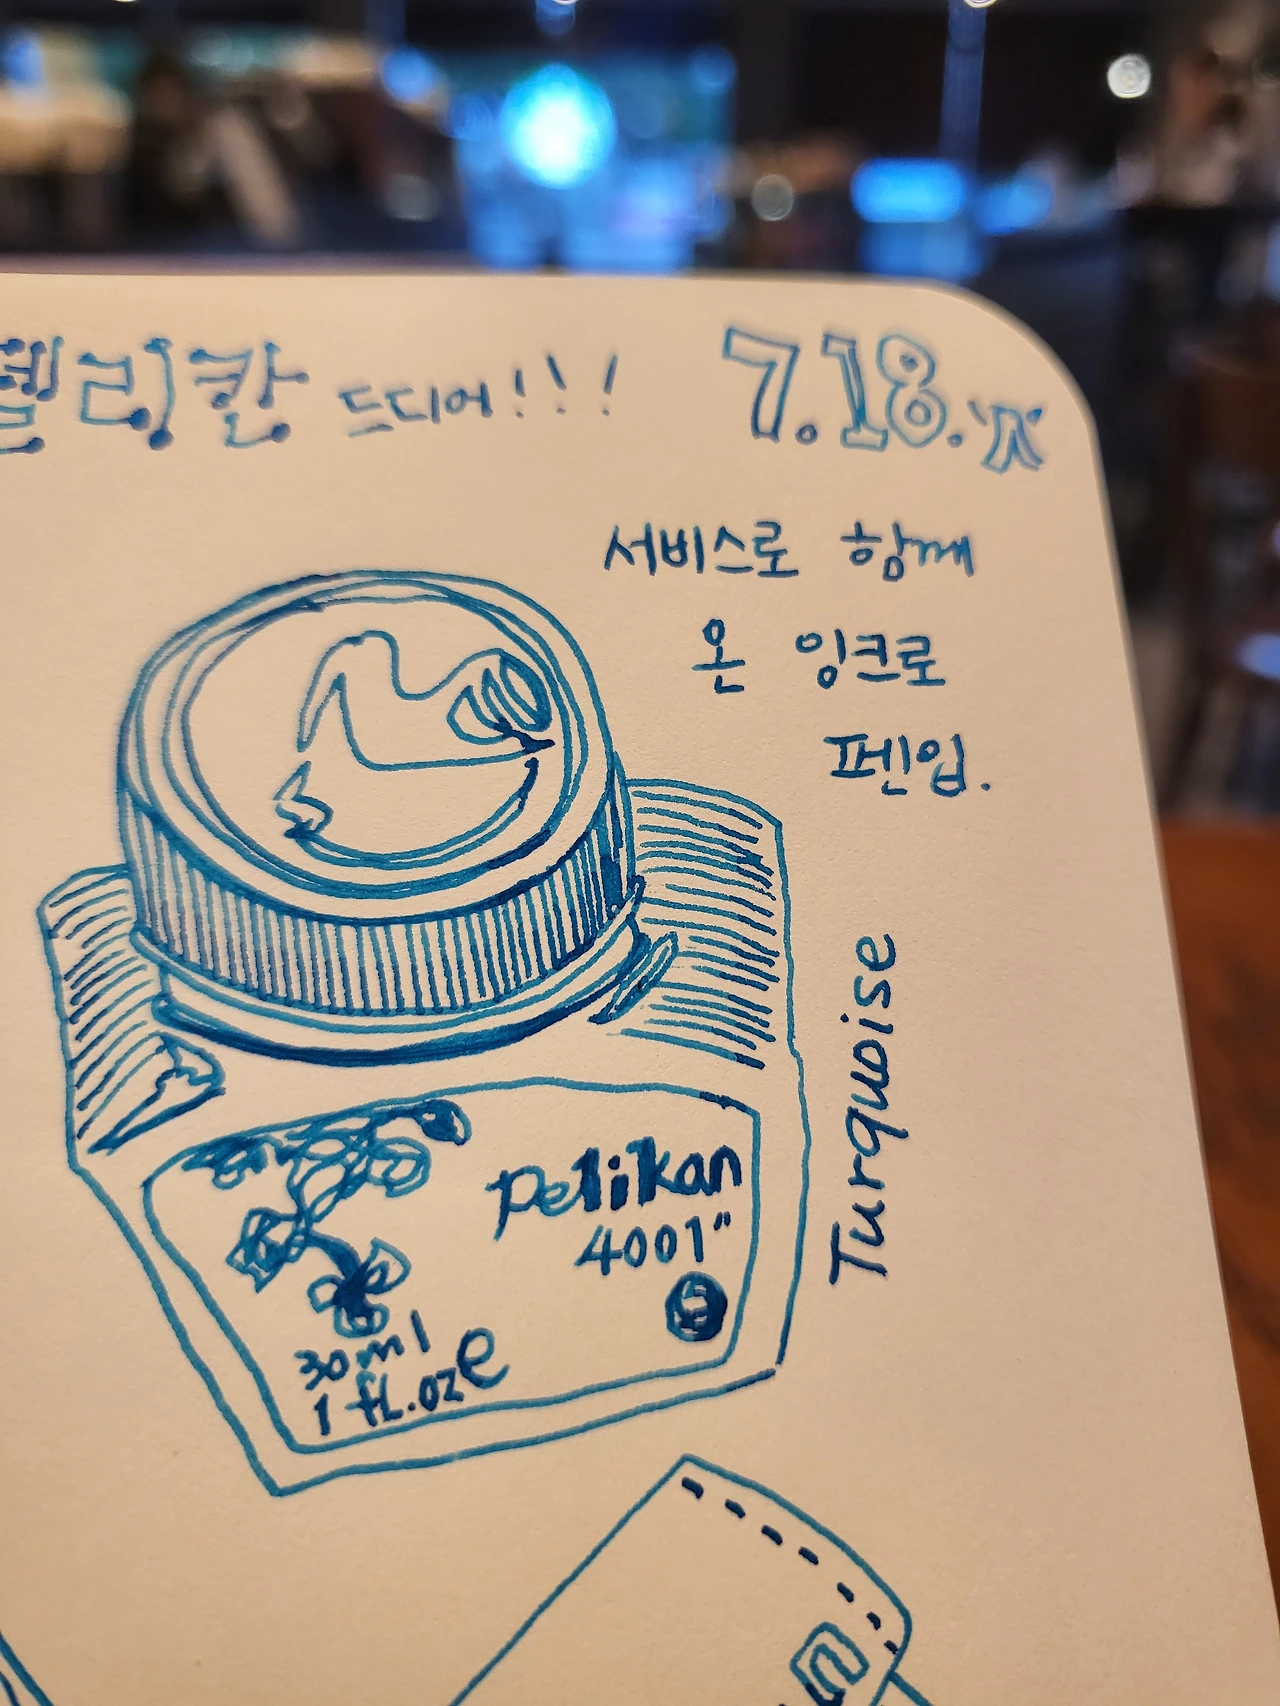 펠리칸 드디어!!! 7.18.'22
서비스로 함께
온 잉크로
펜입.
Turquoise
Pelikan
4001"
30ml
1 fl.oz e